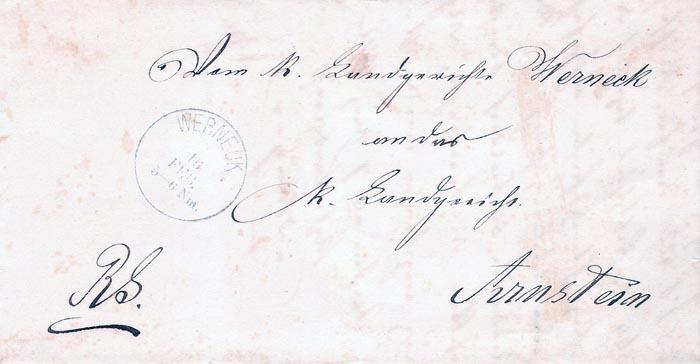 Vom K. Landgerichte Werneck
an das
K. Landgericht.
Arnstein
WERNECK.
16
FEB.
5–6 Nm.
RS.